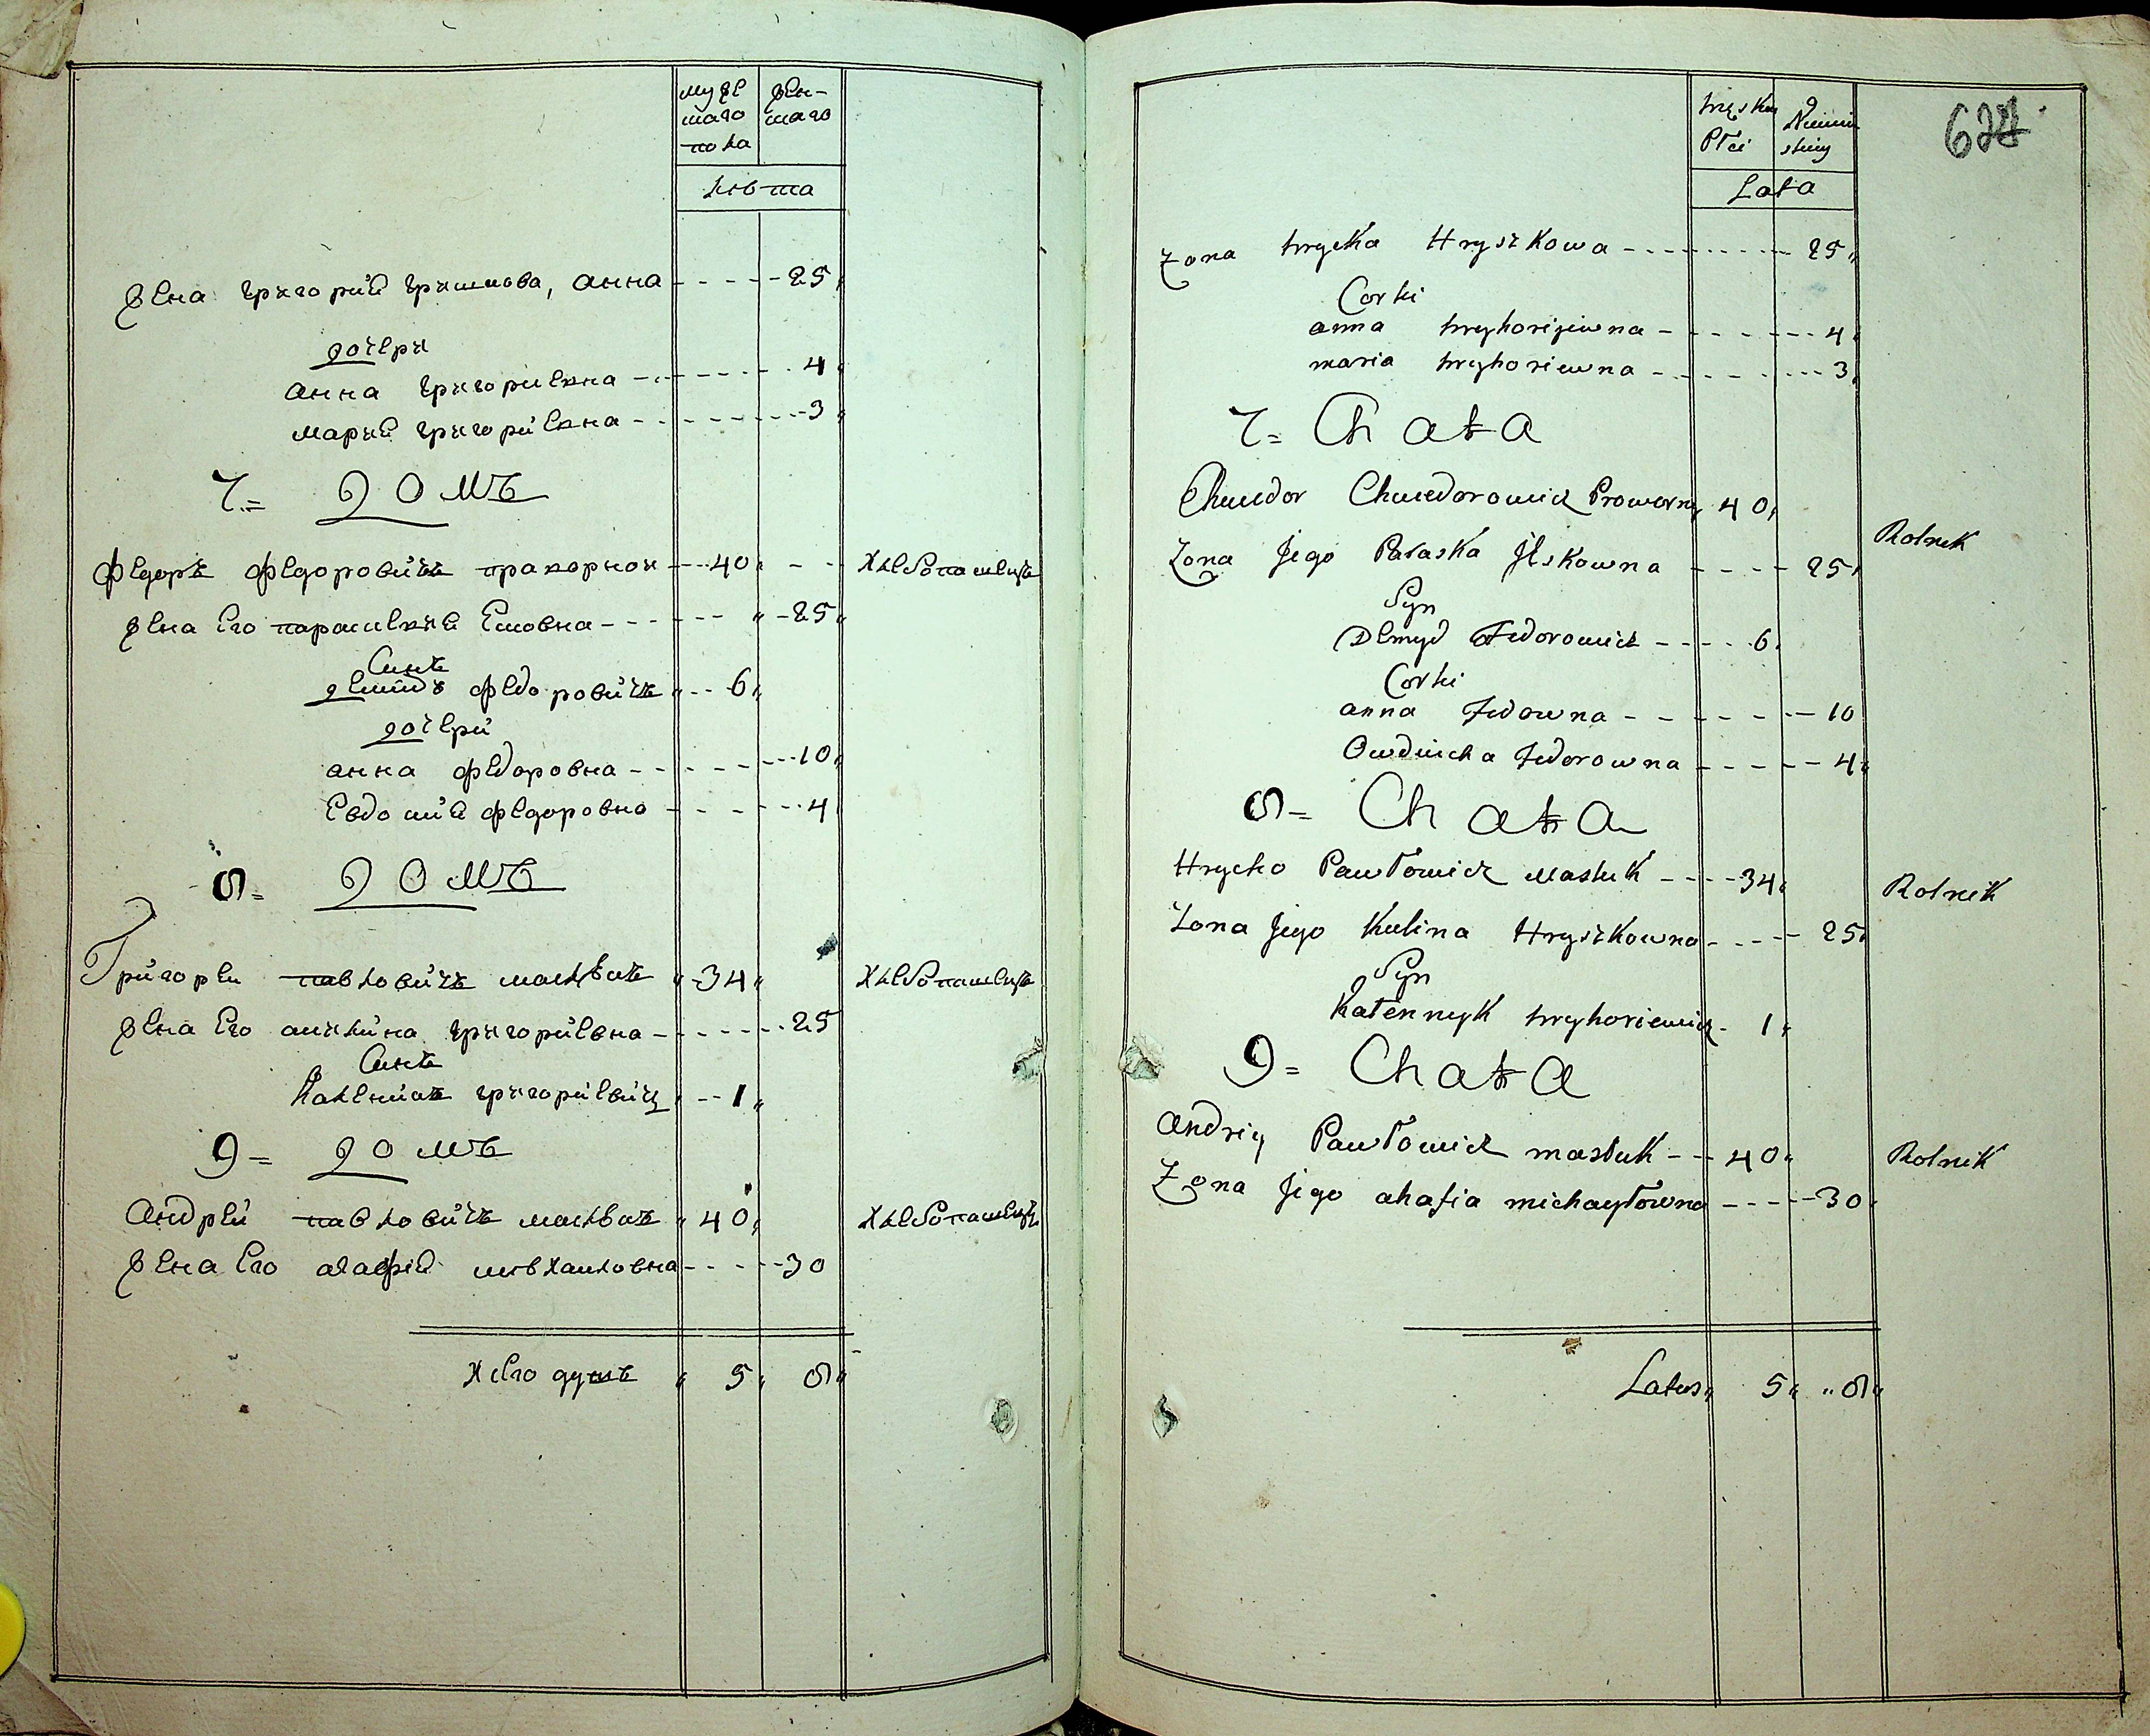 мужескаго пола
женскаго
лѣта
жена григория гришкова, анна 25
дочери
анна григориевна 4
мария григориевна 3
7 = домъ
федоръ федоровичъ праворнои 40 хлебопашецъ
жена его парасковия Еcковна 25
Синъ
демидъ федоровичъ 6
дочери
анна федоровна 10
Евдокия федоровна 4
8 = домъ
Григореи павловичъ маслюкъ 34 хлебопашецъ
жена его акилина григориевна 25
Синъ
Каленикъ григориевичъ 1
9 = домъ
Андрей павловичъ маслюкъ 40 хлебопашецъ
жена его агафия михаиловна 30
душъ 5 8
męskiey Płci
Niewiesciey
Lata
Zona hrycka Hryszkowa 25
Corki
anna hryhorijewna 4
maria hryhoriewna 3
7 = Chata
Chwedor Chwedorowicz Proworny 40 Rolnik
Zona Jego Paraska Jeskowna 25
Syn
Demyd Fedorowicz 6
Corki
anna Fedowna 10
Owdiucha Fedorowna 4
8 = Chata
Hrycko Pawłowicz Masluk 34 Rolnik
Zona Jego Kulina Hryszkowna 25
Syn
Katennyk hryhoriewicz 1
9 = Chata
Andriy Pawłowicz masluk 40 Rolnik
Zona Jego ahafia michayłowna 30
Latus 5 8